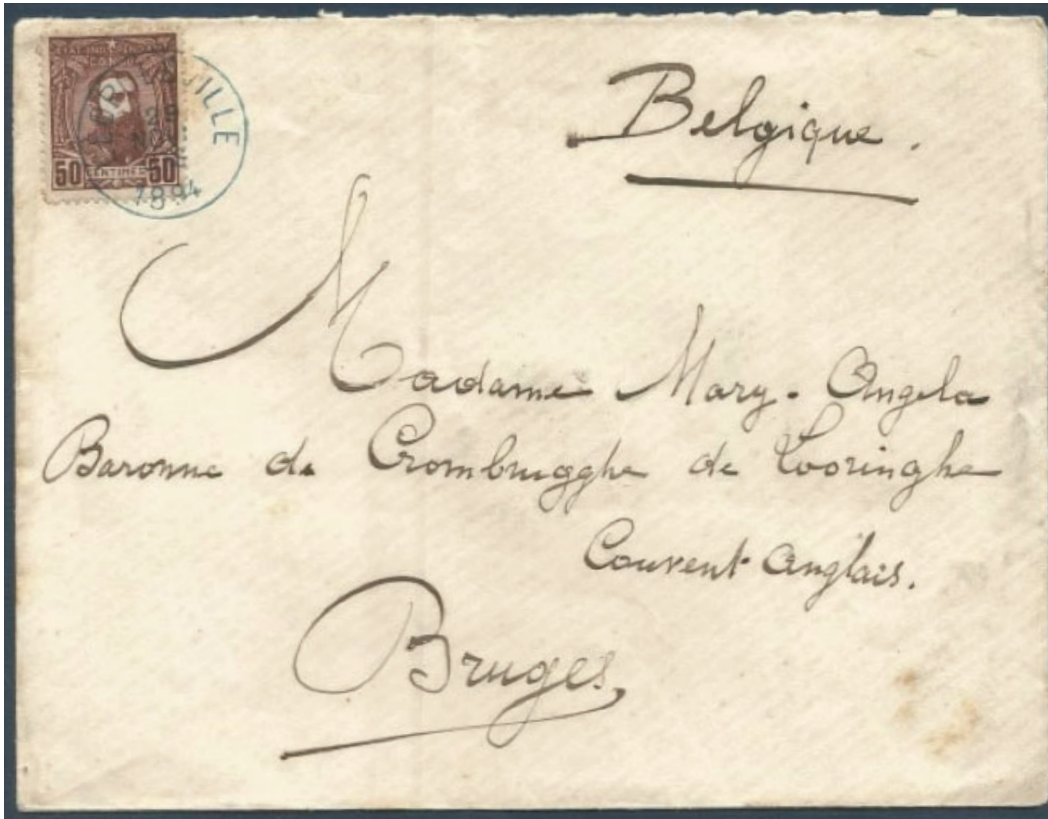 ETAT INDEPENDANT
CONGO
50 CENTIMES 50
VILLE
NOV
1894
Belgique.
Madame Mary-Angela
Baronne de Crombrugghe de Looringhe
Couvent Anglais.
Bruges,